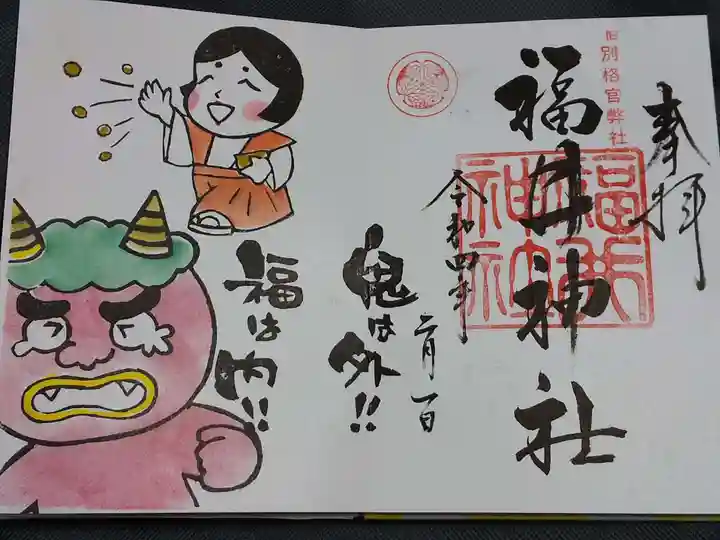 奉拝
旧別格官幣社
福井神社
福井神社
令和四年
二月一日
鬼は外!!
福は内!!